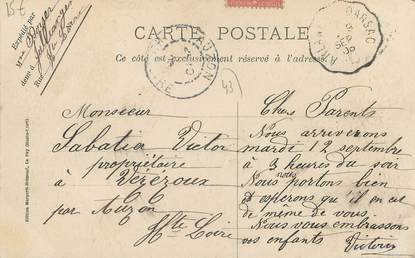 15€
CARTE POSTALE
Ce côté est exclusivement réservé à l'adresse.
Expédié par
Mme
dem t à
Hte Loire
AUZON
LOIRE
DARSAC
43
Monsieur
Sabatier Victor
propriétaire
à Vézézoux
par Auzon
Hte Loire
Chers Parents
Nous arriverons
mardi 12 septembre
à 3 heures du soir
Nous nous portons bien
et esperons qu'il en est
de même de vous.
Nous vous embrassons
vos enfants Victorin
Edition Margerit-Brémond, Le Puy (Haute-Loire)